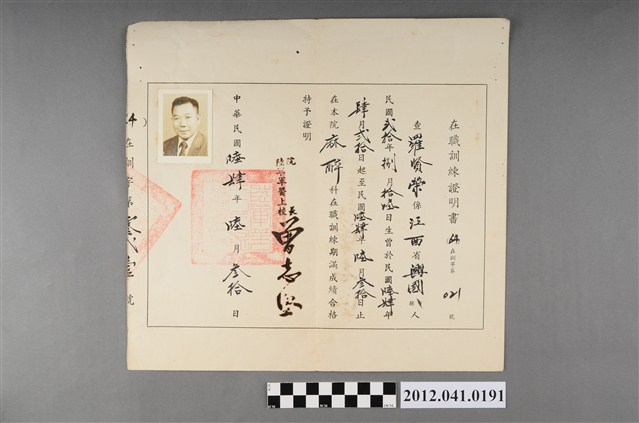 在職訓練證明書（64在訓字第021號
查羅賢榮係江西省興國縣人
民國貳拾年捌月拾陸日生曾於民國陸肆年
肆月貳拾日起至民國陸肆年陸月叁拾日止
在本院麻醉科在職訓練期滿成績合格
特予證明
院長
陸軍軍醫上校
曾志
中華民國陸肆年陸月叁拾日
64在訓字第零貳壹號
2012.041.0191